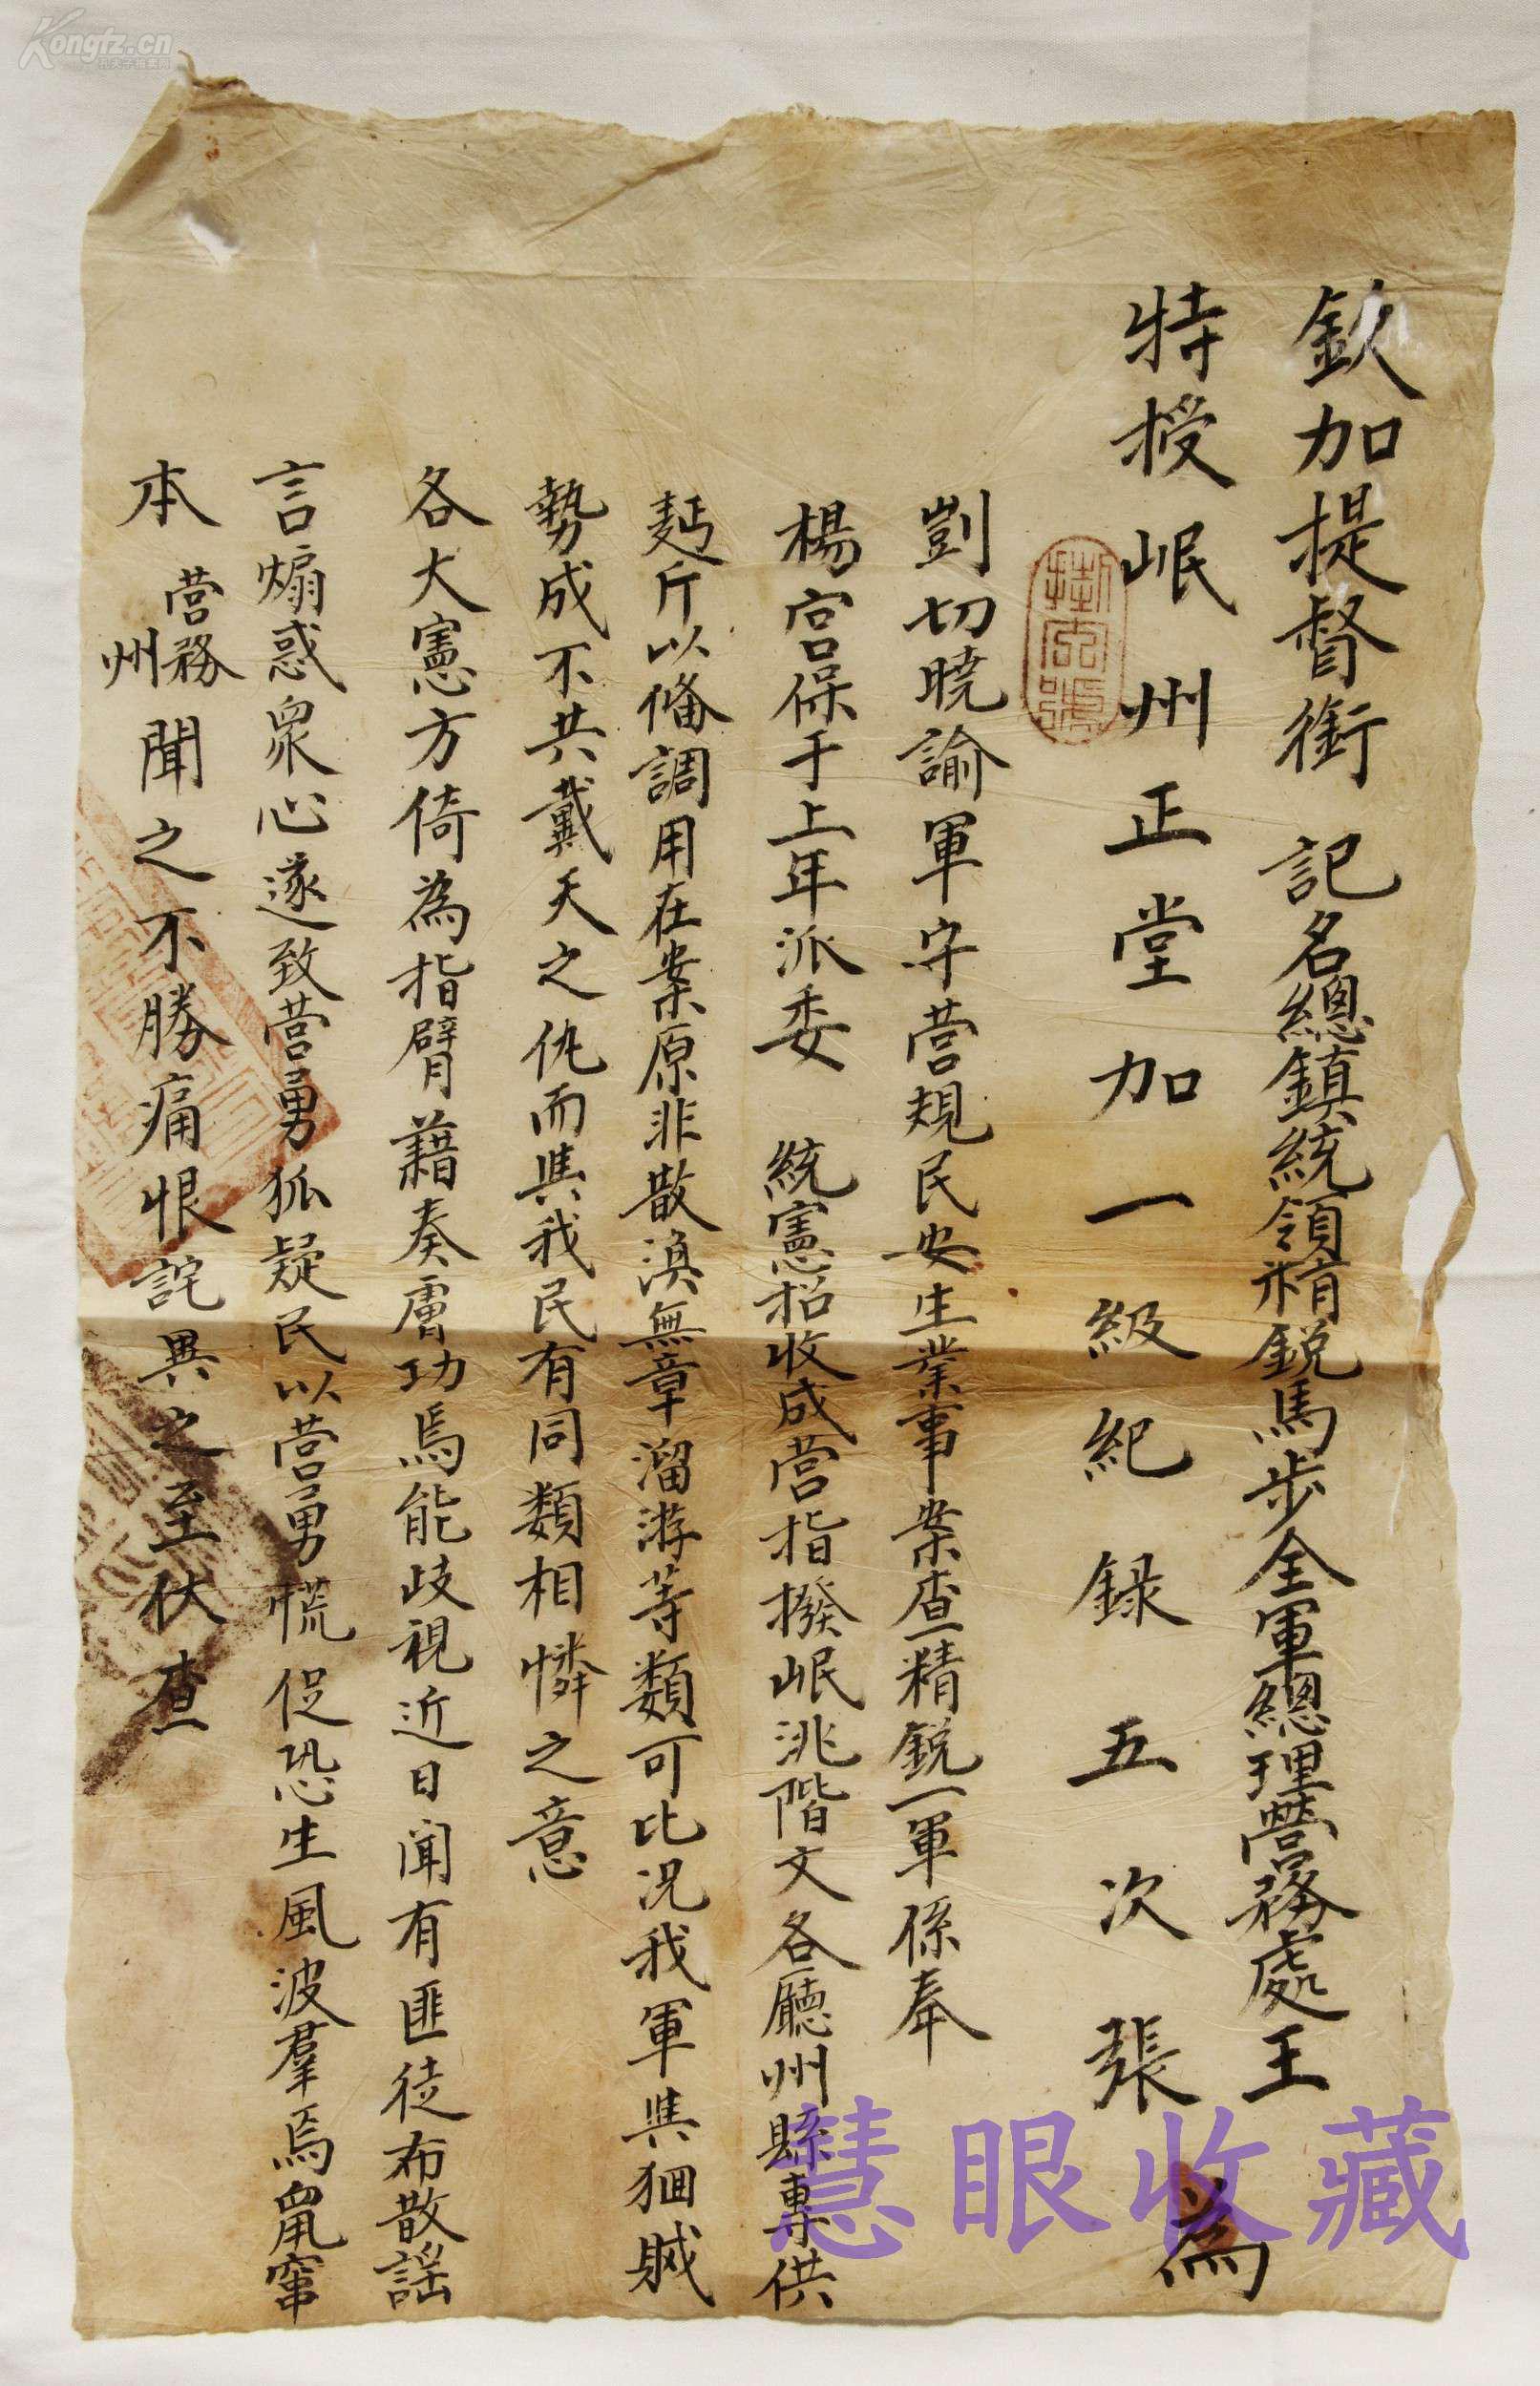 欽加提督銜記名總鎮統領精銳馬步全軍總理營務處王
為
特授岷州正堂加一級紀錄五次張
剴切曉諭軍守营規民安生業事案查精銳一軍係奉
楊宮保于上年派委 統憲招收成营指撥岷洮階文各廳州縣專供
麫斤以俻調用在案原非散渙無章溜游等類可比况我軍與狪賊
勢成不共戴天之仇而與我民有同類相憐之意
各大憲方倚為指臂藉奏膚功焉能歧視近日闻有匪徒布散謡
言煽惑衆心遂致营勇狐疑民以营勇慌促恐生風波羣焉鼠窜
本营務州聞之不勝痛恨詫異之至伏查
Kongfz.cn
慧眼收藏